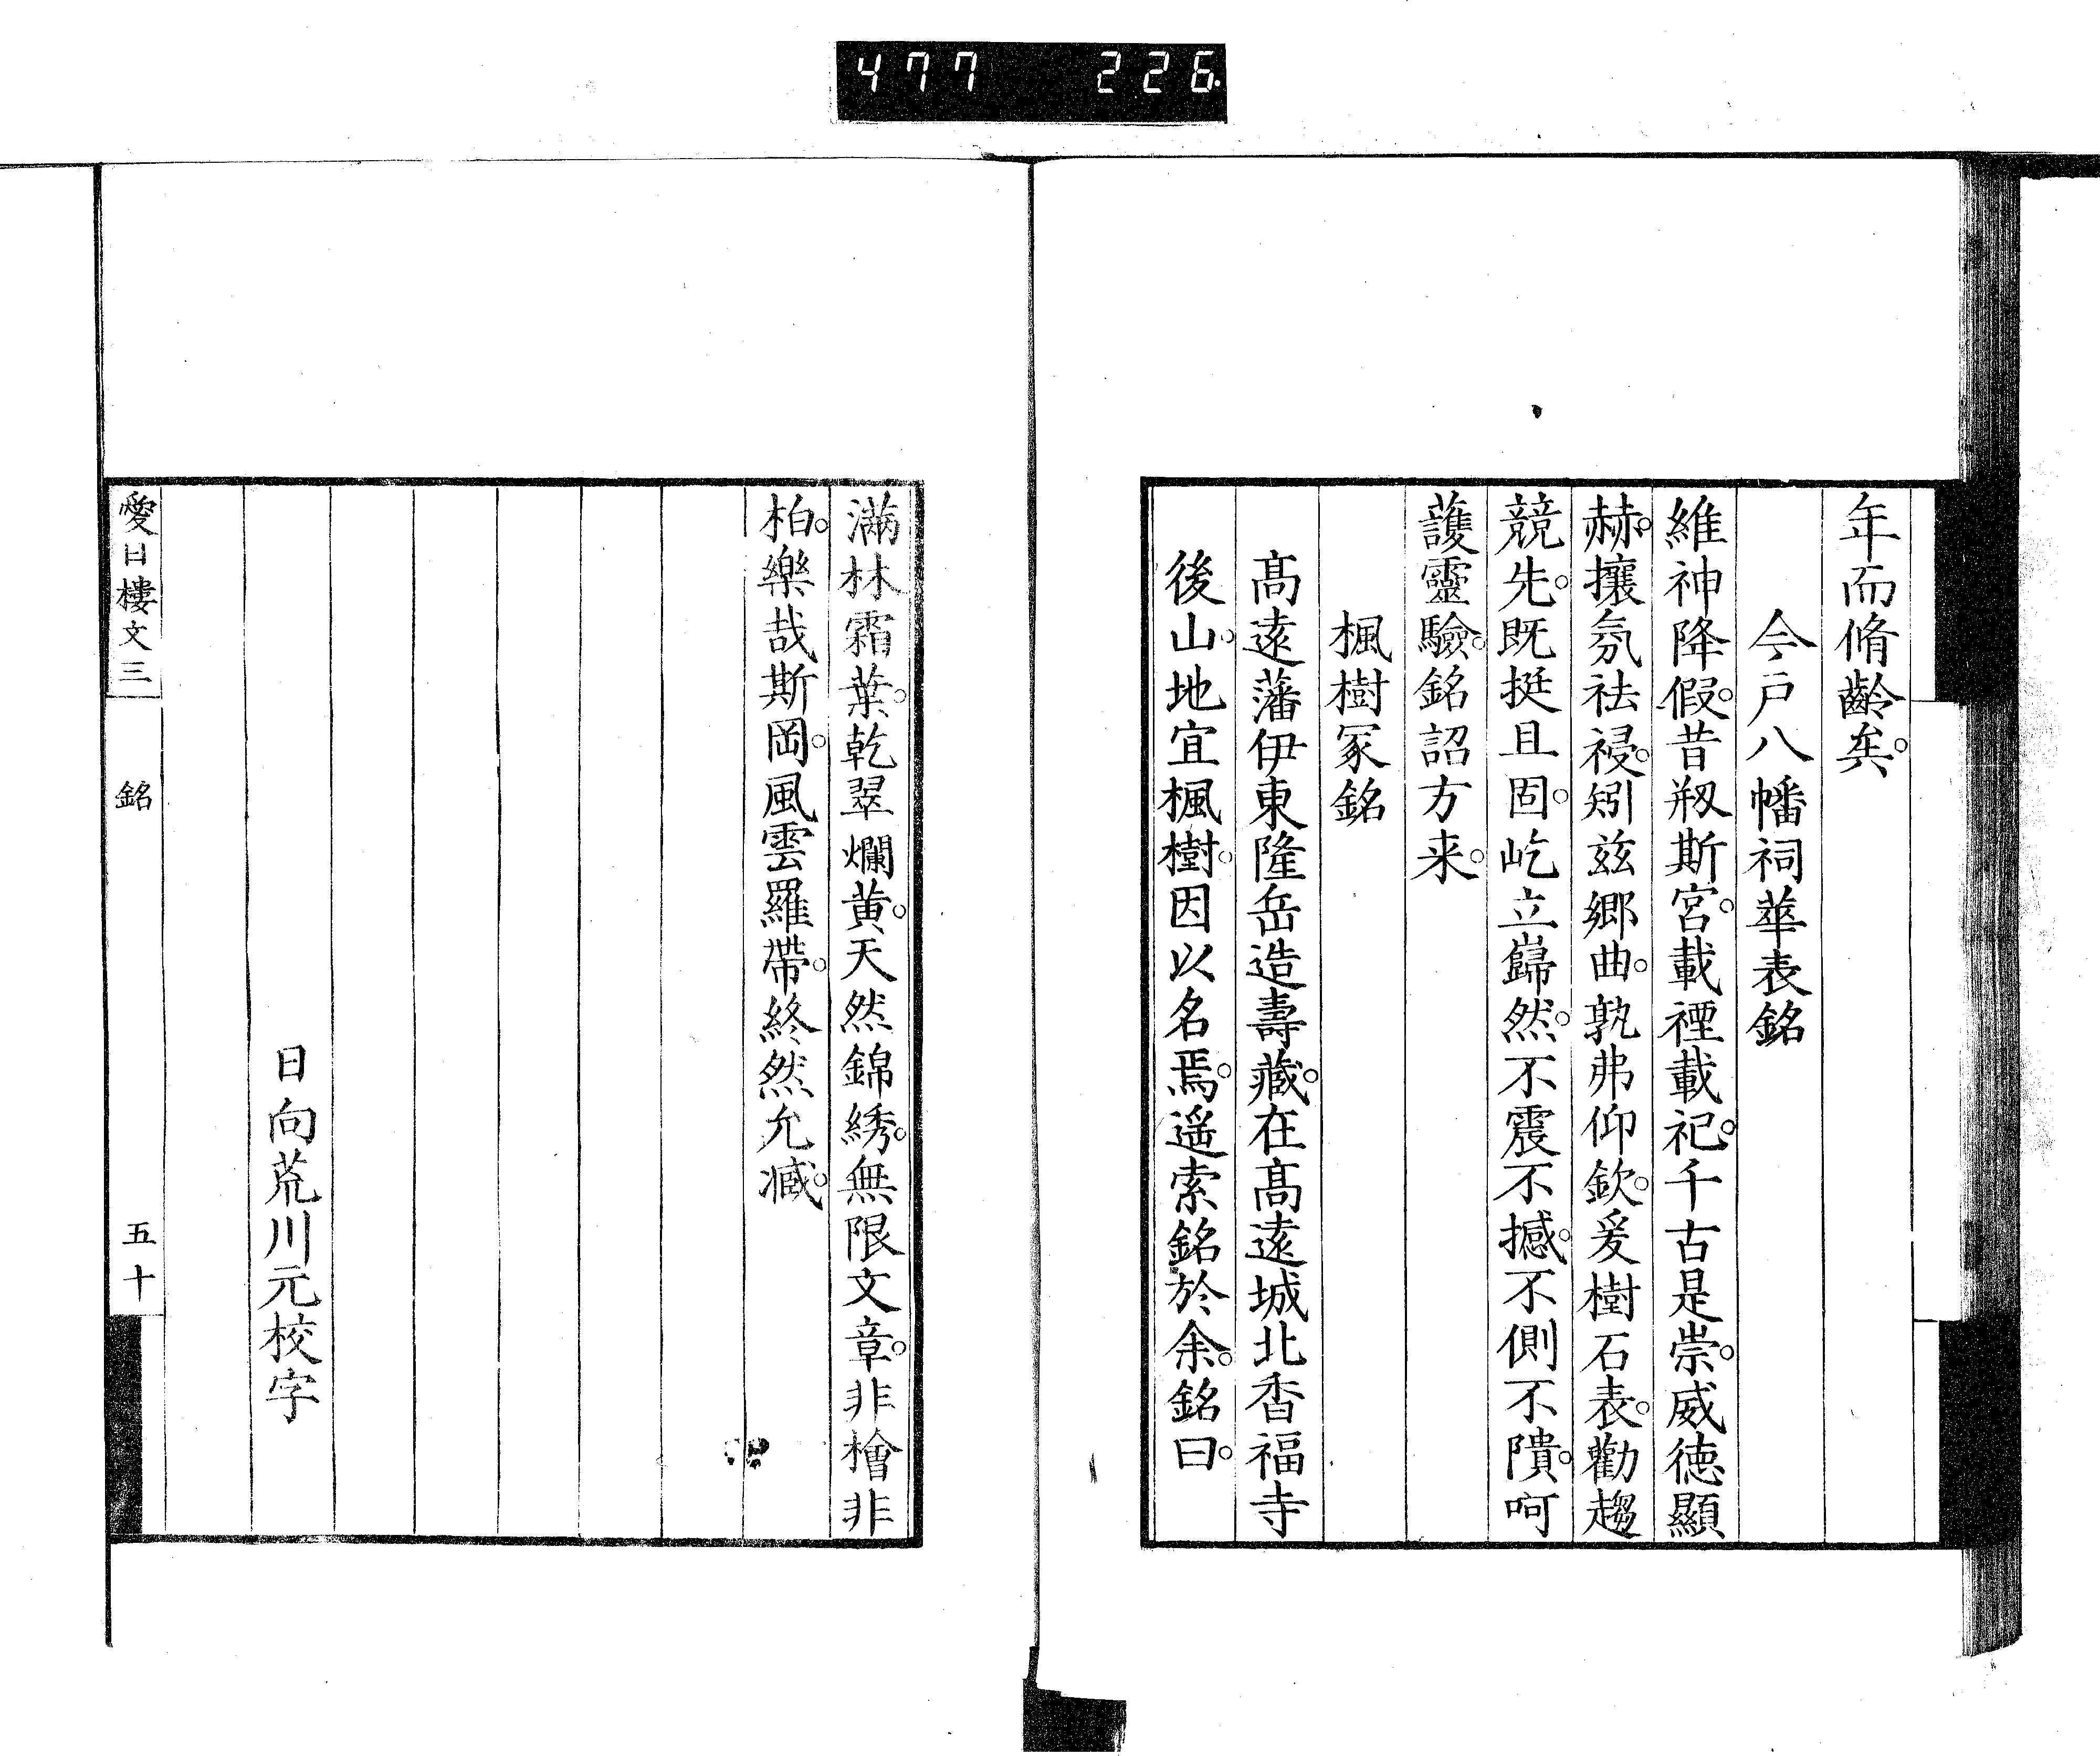 477 226
年而脩齡矣。
今戸八幡祠華表銘
維神降假。昔剏斯宮。載禋載祀。千古是崇。威徳顯
赫。攘氛祛祲。矧兹郷曲。孰弗仰欽。爰樹石表。勸趨
競先。既挺且固。屹立巋然。不震不撼。不側不隤。呵
護靈驗。銘詔方来。
楓樹冢銘
髙遠藩伊東隆岳造壽藏。在髙遠城北香福寺
後山。地宜楓樹。因以名焉。遥索銘於余。銘曰。
滿林霜葉。乾翠爛黄。天然錦綉。無限文章。非檜非
柏。樂哉斯岡。風雲羅帶。終然允臧。
日向荒川元校字
愛日樓文三 銘 五十